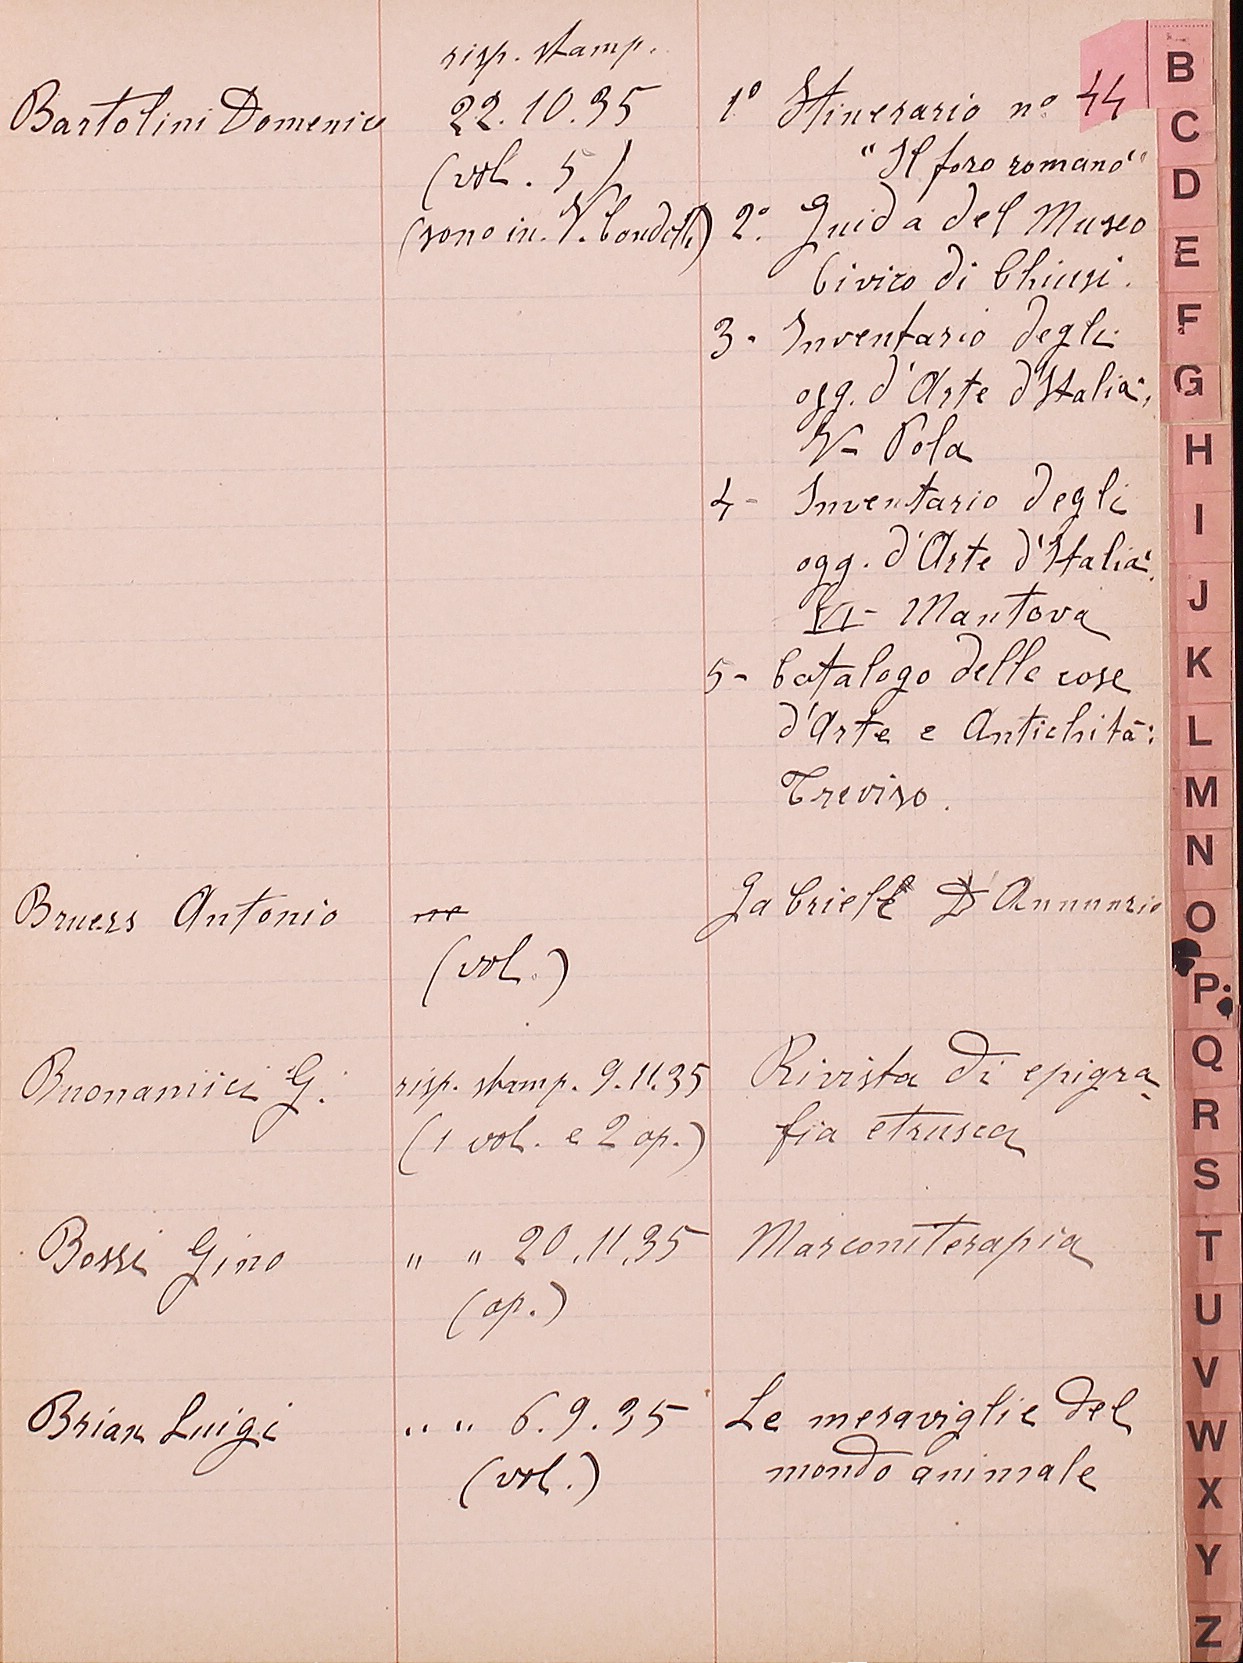 risp. stamp.
Bartolini Domenico 22.10.35 1° Itinerario n° 44
(vol. 5) "Il foro romano"
(sono in V. Condotti) 2° Guida del Museo
Civico di Chiusi.
3- Inventario degli
ogg. d'Arte d'Italia;
V- Pola
4- Inventario degli
ogg. d'Arte d'Italia:
VI- Mantova
5- Catalogo delle cose
d'Arte e Antichità:
Treviso.
Bruers Antonio Gabriele D'Annunzio
(vol.)
Buonamici G. risp. stamp. 9.11.35 Rivista di epigra-
(1 vol. e 2 op.) fia etrusca
Bossi Gino " " 20.11.35 Marconiterapia
(op.)
Brian Luigi " " 6.9.35 Le meraviglie del
(vol.) mondo animale
B
C
D
E
F
G
H
I
J
K
L
M
N
O
P
Q
R
S
T
U
V
W
X
Y
Z